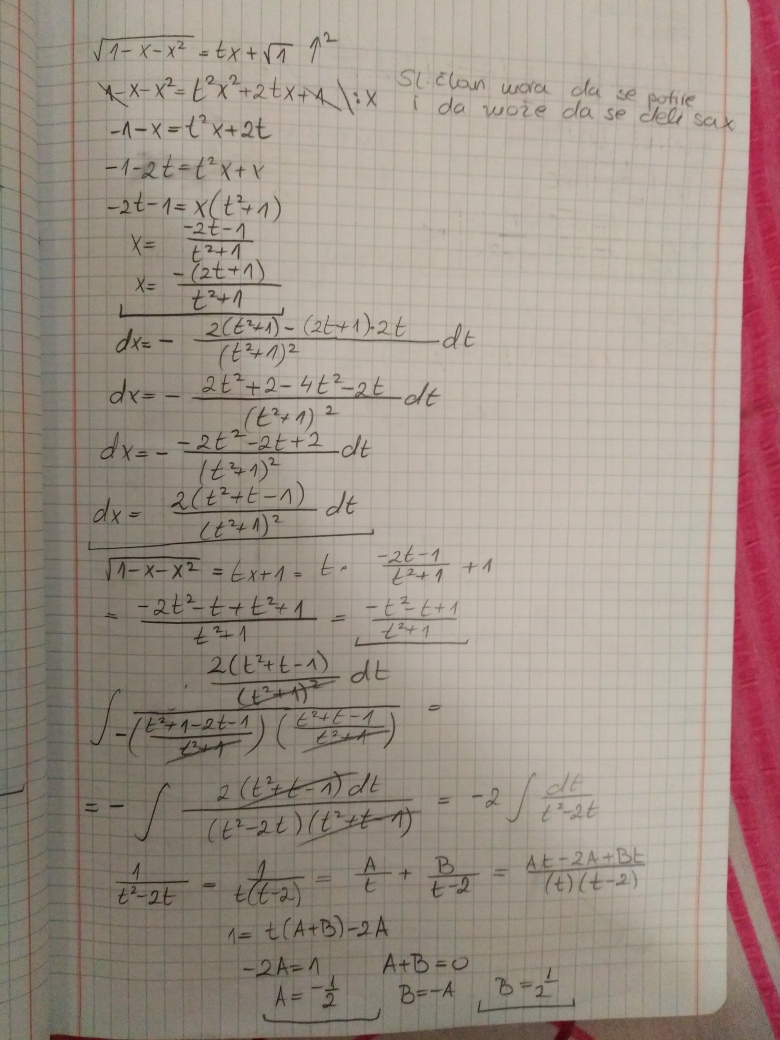 √(1-x-x²) = tx+√1 ↑²
1-x-x² = t²x²+2tx+1 \:x
Sl. član mora da se potire
i da može da se deli sa x
-1-x = t²x+2t
-1-2t = t²x+x
-2t-1 = x(t²+1)
x = (-2t-1)/(t²+1)
x = -(2t+1)/(t²+1)
dx = - (2(t²+1)-(2t+1)·2t)/(t²+1)² dt
dx = - (2t²+2-4t²-2t)/(t²+1)² dt
dx = - (-2t²-2t+2)/(t²+1)² dt
dx = 2(t²+t-1)/(t²+1)² dt
√(1-x-x²) = tx+1 = t · (-2t-1)/(t²+1) + 1
= (-2t²-t+t²+1)/(t²+1) = (-t²-t+1)/(t²+1)
∫ (2(t²+t-1)/(t²+1)² dt)/(-((t²+1-2t-1)/(t²+1))((t²+t-1)/(t²+1))) =
= - ∫ 2(t²+t-1)dt/((t²-2t)(t²+t-1)) = -2 ∫ dt/(t²-2t)
1/(t²-2t) = 1/(t(t-2)) = A/t + B/(t-2) = (At-2A+Bt)/((t)(t-2))
1 = t(A+B)-2A
-2A=1 A+B=0
A = -1/2 B=-A B = 1/2